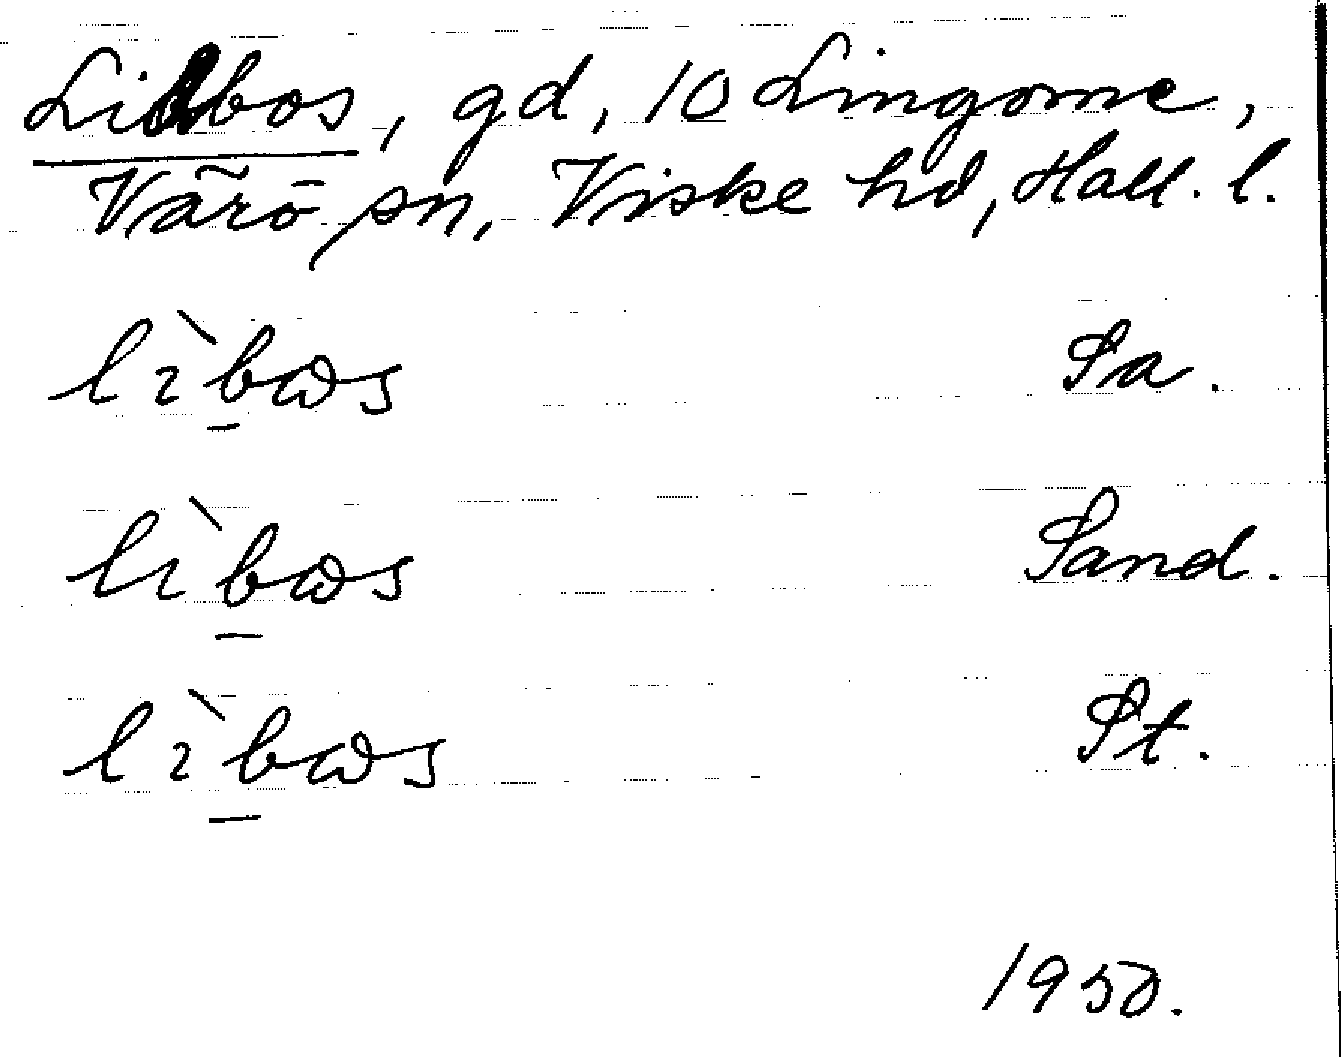 Libbos, gd, 10 Lingome,
Värö sn, Viske hd, Hall. l.
lìbɷs Sa.
lìbɷs Sand.
lìbɷs St.
1950.